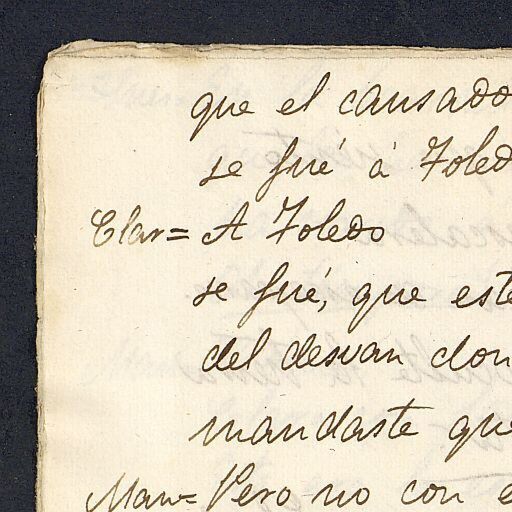 que el causado
se fué á Toled
Clar= A Toledo
se fué, que este
del desvan don
mandaste que
Man= Pero no con e